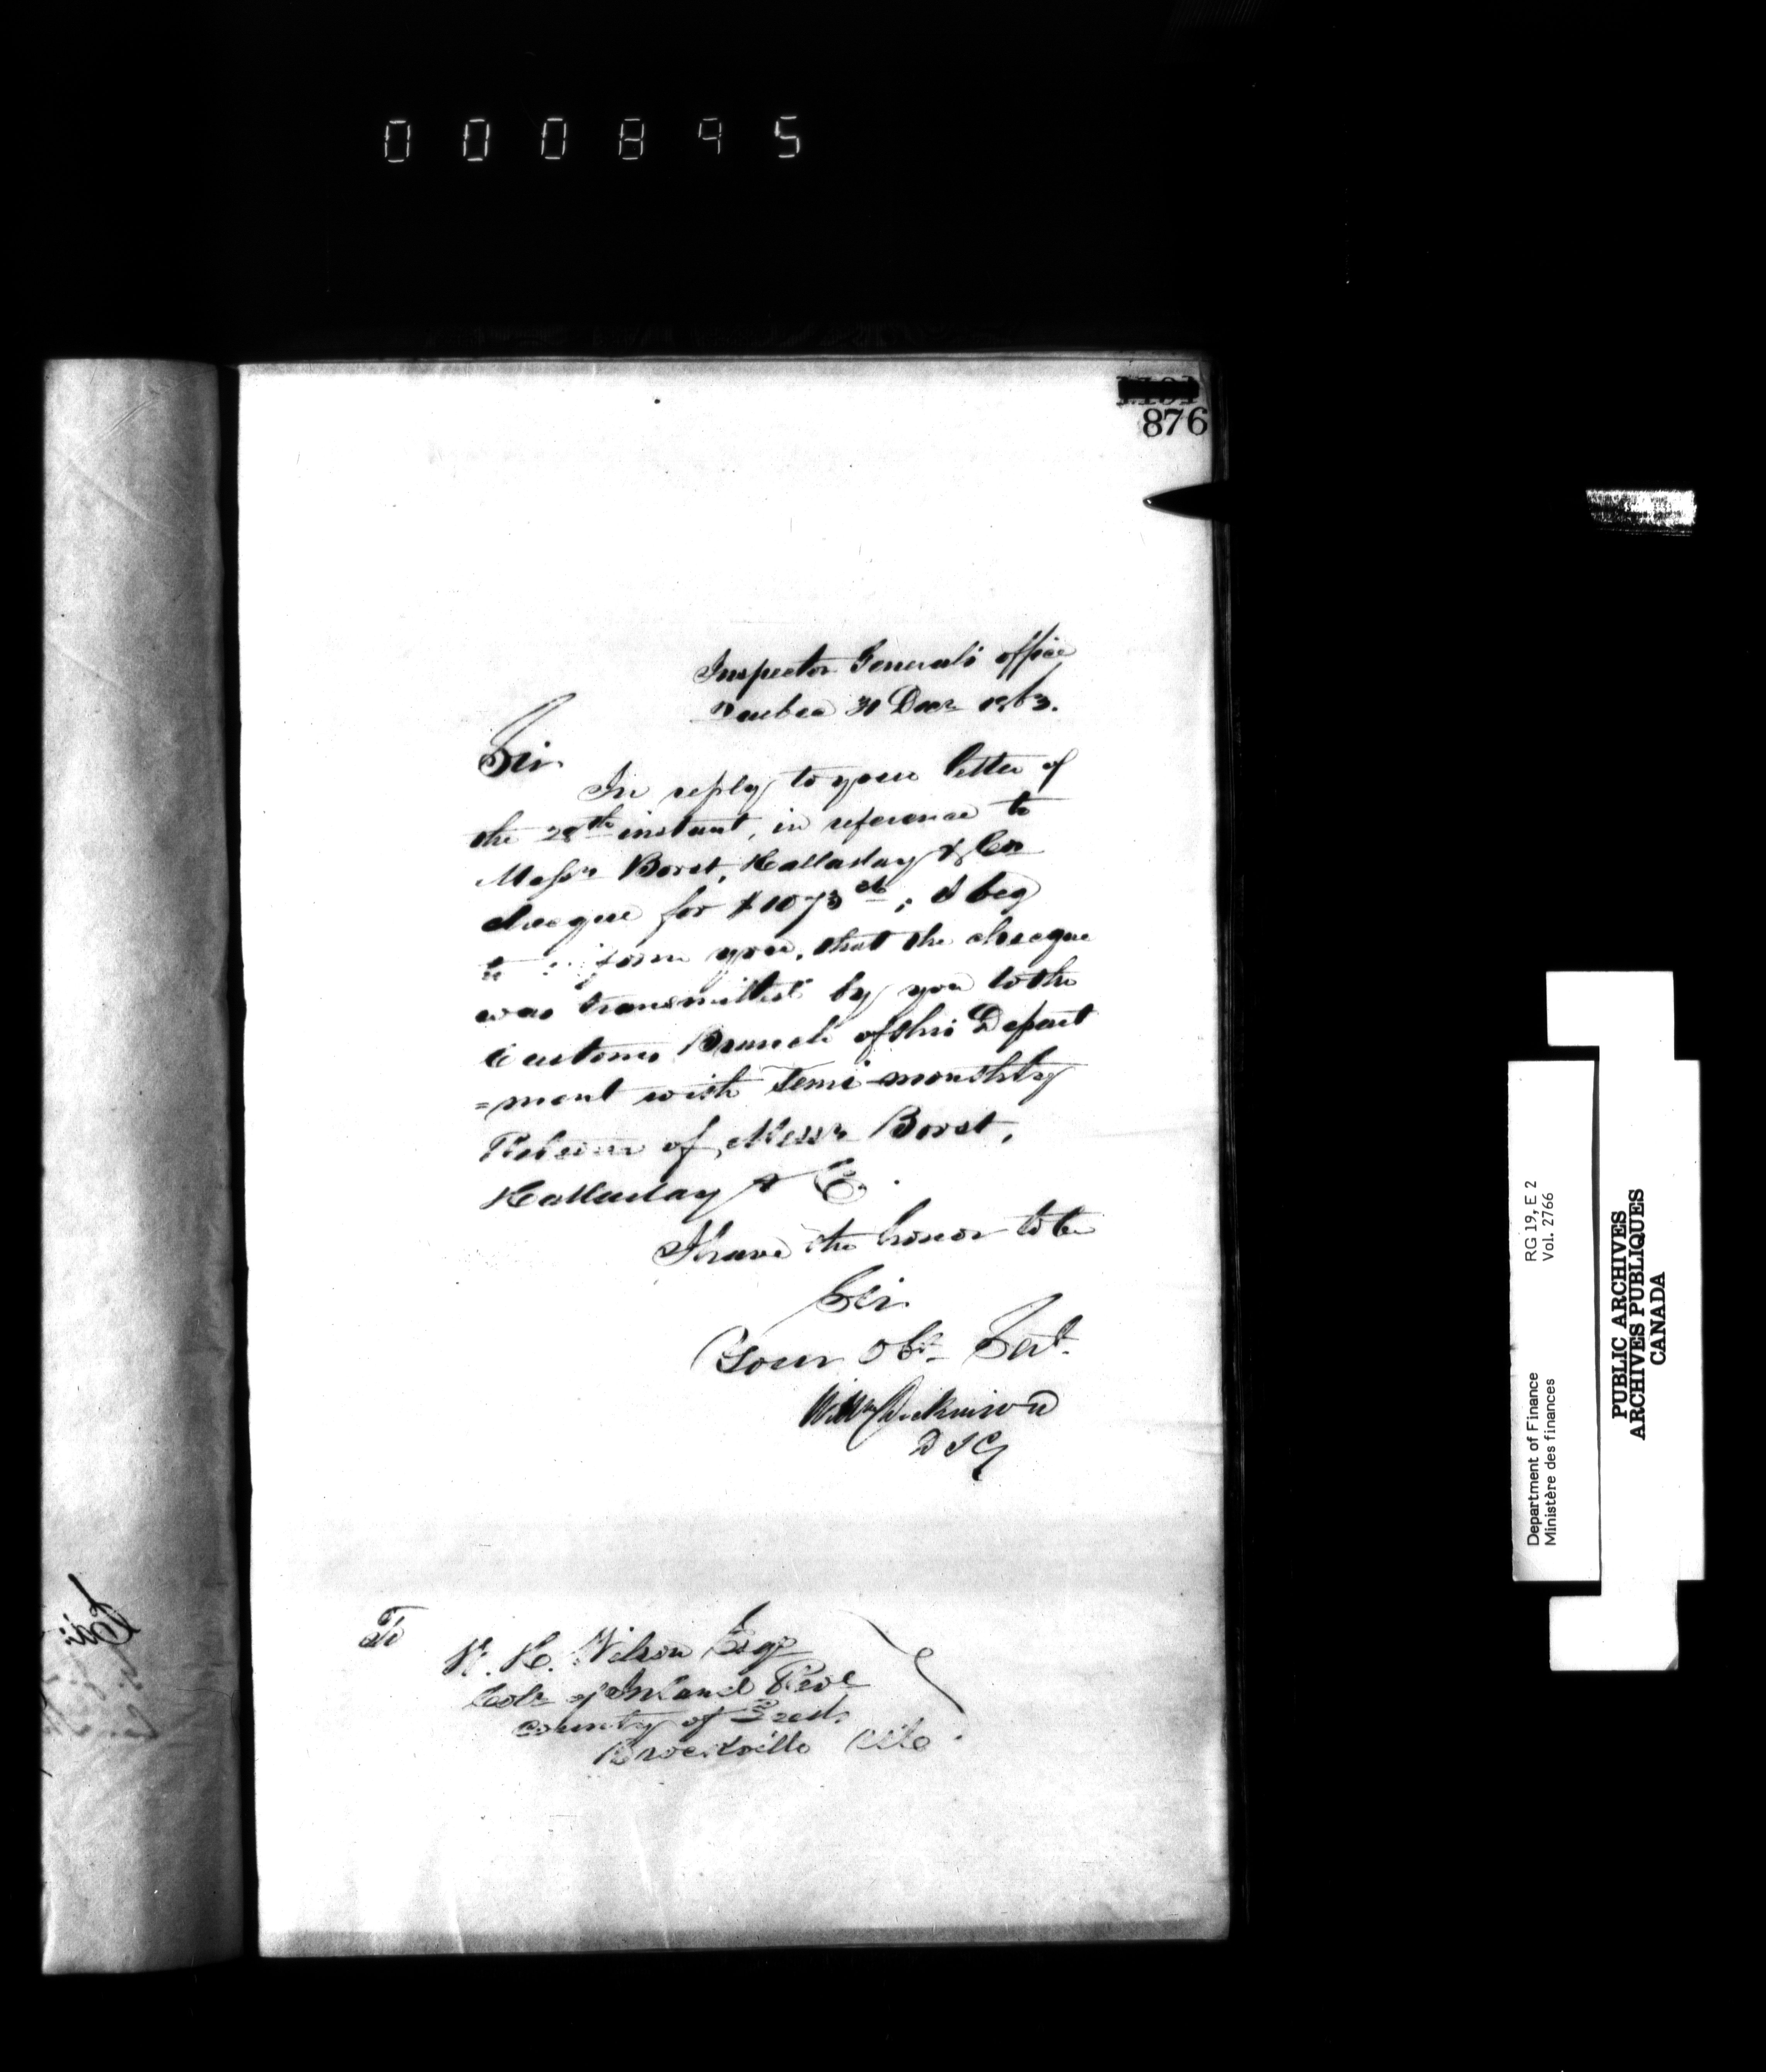 000895
876
Inspector Generals office
Quebec 31 Decr 1863.
Sir
In reply to your letter of
the 28th instant, in reference to
Messrs Borst, Halladay & Co
cheque for $1073 cts; I beg
to inform you, that the cheque
was transmitted by you to the
Customs Branch of this Depart
=ment with Semi-monthly
Return of Messrs Borst,
Halladay & Co.
I have the honor to be
Sir
Your Obt Servt
Wm Dickinson
D I G
To
W. H. Wilson Esqr
Colr of Inland Reve
County of Leeds
Brockville C.W.
Department of Finance RG 19, E 2
Ministère des finances Vol. 2766
PUBLIC ARCHIVES
ARCHIVES PUBLIQUES
CANADA